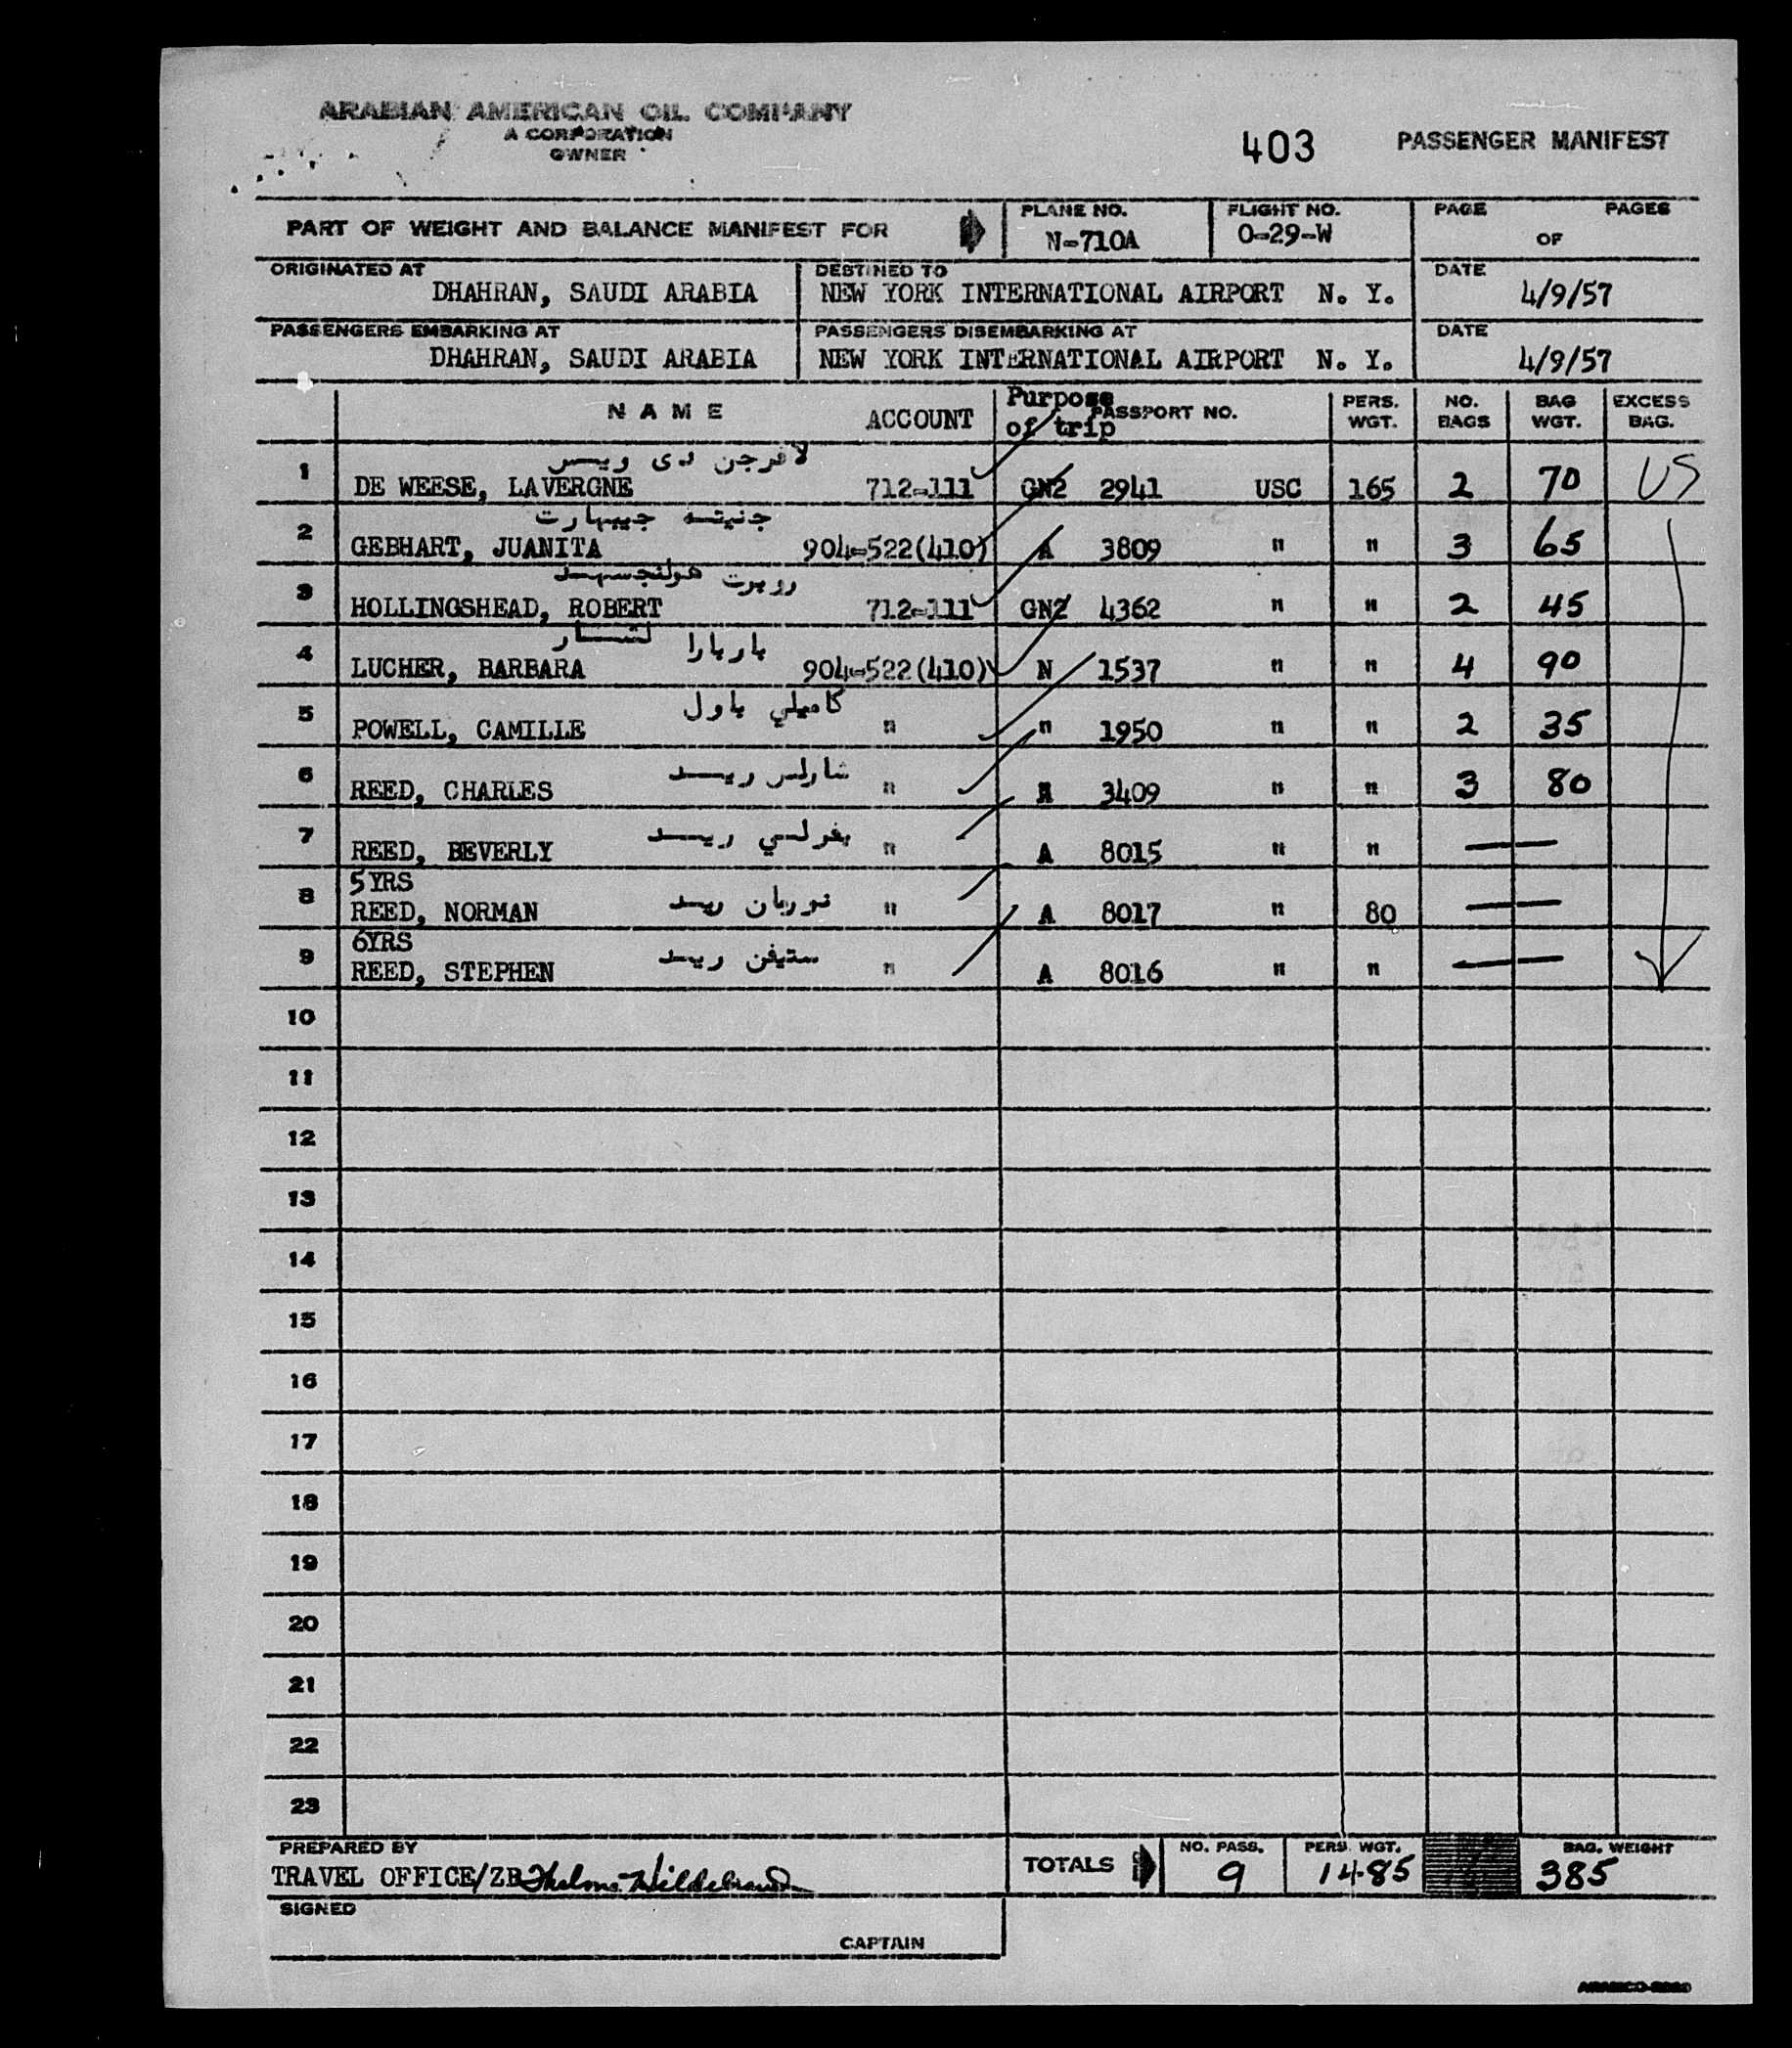 ARABIAN AMERICAN OIL COMPANY
A CORPORATION
OWNER
403 PASSENGER MANIFEST
PART OF WEIGHT AND BALANCE MANIFEST FOR PLANE NO. N-710A FLIGHT NO. O-29-W PAGE OF PAGES
ORIGINATED AT DHAHRAN, SAUDI ARABIA DESTINED TO NEW YORK INTERNATIONAL AIRPORT N. Y. DATE 4/9/57
PASSENGERS EMBARKING AT DHAHRAN, SAUDI ARABIA PASSENGERS DISEMBARKING AT NEW YORK INTERNATIONAL AIRPORT N. Y. DATE 4/9/57
NAME ACCOUNT Purpose of trip PASSPORT NO. PERS. WGT. NO. BAGS BAG WGT. EXCESS BAG.
لافرجن دى ويس
1 DE WEESE, LAVERGNE 712-111 GN2 2941 USC 165 2 70 US
جنيته جيبهارت
2 GEBHART, JUANITA 904-522(410) A 3809 " " 3 65
روبرت هولنجسهد
3 HOLLINGSHEAD, ROBERT 712-111 GN2 4362 " " 2 45
باربارا لتشار
4 LUCHER, BARBARA 904-522(410) N 1537 " " 4 90
كاميلي باول
5 POWELL, CAMILLE " " 1950 " " 2 35
شارلس ريد
6 REED, CHARLES " 3409 " " 3 80
بفرلي ريد
7 REED, BEVERLY " A 8015 " " —
5YRS
8 REED, NORMAN نورمان ريد " A 8017 " 80 —
6YRS
9 REED, STEPHEN ستيفن ريد " A 8016 " " —
10
11
12
13
14
15
16
17
18
19
20
21
22
23
PREPARED BY TRAVEL OFFICE/ZB Thelma Hildebrand TOTALS NO. PASS. 9 PERS. WGT. 1485 BAG. WEIGHT 385
SIGNED
CAPTAIN